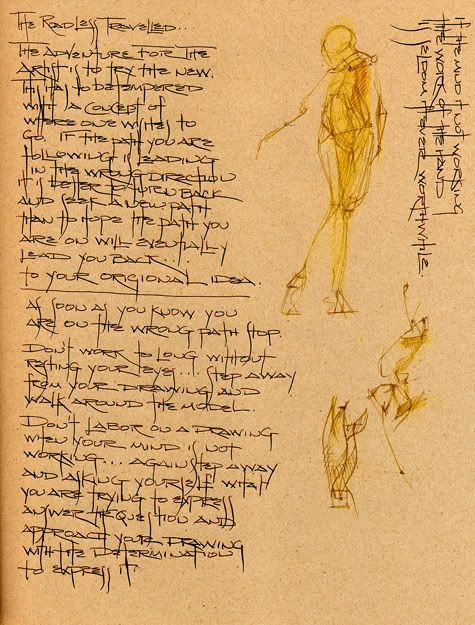 The Road Less Travelled...
The adventure for the
artist is to try the new.
This has to be tempered
with a concept of
where one wishes to
go. If the path you are
following is leading
in the wrong direction
it is better to turn back
and seek a new path
than to hope the path you
are on will eventually
lead you back...
to your origional idea.
As soon as you know you
are on the wrong path stop.
Don't work to long without
resting your eyes... step away
from your drawing and
walk around the model.
Don't labor on a drawing
when your mind is not
working... again step away
and asking yourself what
you are trying to express
answer the question and
approach your drawing
with the determination
to express it
If the mind is not working
the work of the hand
is seldom if ever worthwhile.